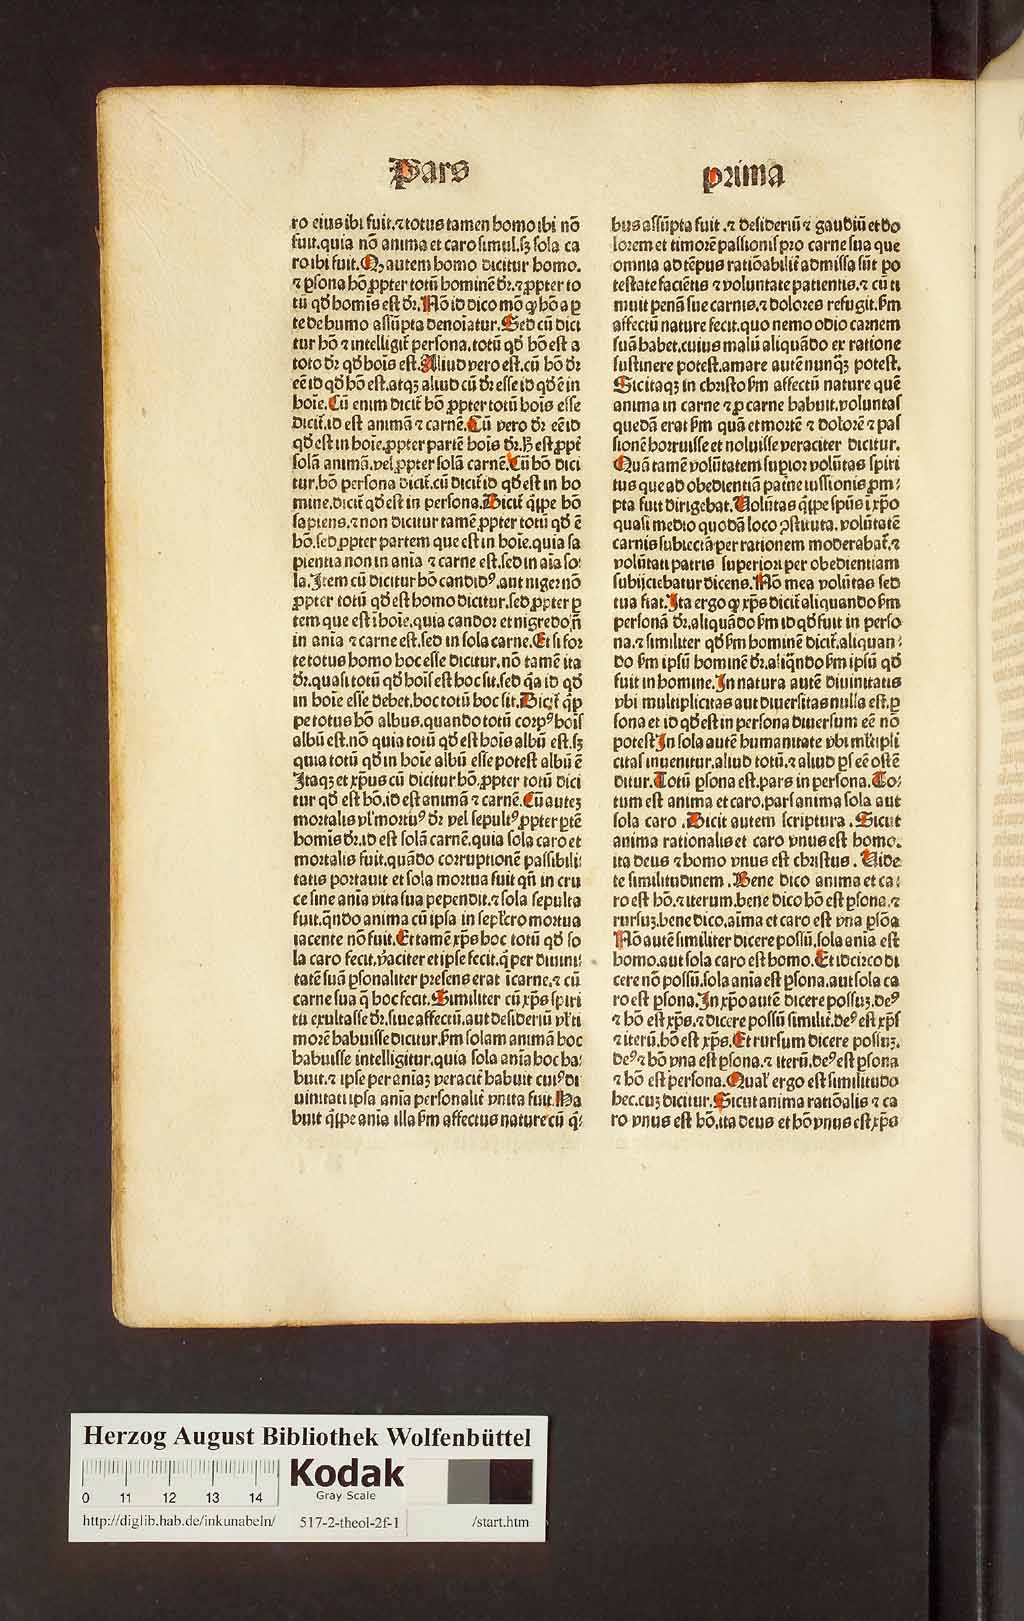 Pars
prima
ro eius ibi fuit.⁊ totus tamen homo ibi nō
fuit.quia nō anima et caro simul.sꝫ sola ca
ro ibi fuit.Qꝫ autem homo dicitur homo.
⁊ ꝑsona hō ꝓpter totū hominē dr̄.⁊ ꝓpter to
tū qd̓ homīs est dr̄.Nō id dico mō ꝙ hō a ꝑ
te de humo assūpta denoīatur.Sed cū dici
tur hō ⁊ intelligit̄ persona.totū qd̓ hō est a
toto dr̄ qd̓ hoīs est.Aliud vero est.cū hō dr̄
eē id qd̓ hō est.atqꝫ aliud cū dr̄ esse id qd̓ ē in
hoīe.Cū enim dicit̄ hō ꝓpter totū hoīs esse
dicit̄.id est animā ⁊ carnē.Cū vero dr̄ eē id
qd̓ est in hoīe.ꝓpter partē hoīs dr̄.H̄ est ꝓpt̄
solā animā.vel ꝓpter solā carnē.Cū hō dici
tur.hō persona dicit̄.cū dicit̄ id qd̓ est in ho
mine.dicit̄ qd̓ est in persona.Dicit̄ q̄ppe hō
sapiens.⁊ non dicitur tamē ꝓpter totū qd̓ ē
hō.sed ꝓpter partem que est in hoīe.quia sa
pientia non in anīa ⁊ carne est.sed in aīa so:
la.Item cū dicitur hō candid⁹.aut niger nō
ꝓpter totū qd̓ est homo dicitur.sed ꝓpter ꝑ
tem que est ī hoīe.quia candor et nigredo n̄
in anīa ⁊ carne est.sed in sola carne.Et si for
te totus homo hoc esse dicitur.nō tamē ita
dr̄.quasi totū qd̓ hoīs est hoc sit.sed q̄a id qd̓
in hoīe esse debet.hoc totū hoc sit.Dicit̄ q̄p
pe totus hō albus.quando totū corp⁹ hoīs
albū est.nō quia totū qd̓ est hoīs albū est.sꝫ
quia totū qd̓ in hoīe albū esse potest albū ē
Itaqꝫ et xp̄us cū dicitur hō.ꝓpter totū dici
tur qd̓ est hō.id est animā ⁊ carnē.Cū autez
mortalis vl̓ mortu⁹ dr̄ vel sepult⁹.ꝓpter ꝑtē
homīs dr̄.id est solā carnē.quia sola caro et
mortalis fuit.quādo corruptionē passibili:
tatis portauit et sola mortua fuit qn̄ in cru
ce sine anīa vita sua pependit.⁊ sola sepulta
fuit.qn̄do anima cū ipsa in sepl̓cro mortua
iacente nō fuit.Et tamē xp̄s hoc totū qd̓ so
la caro fecit.v̄aciter et ipse fecit.q̄ per diuini
tatē suā ꝑsonaliter presens erat ī carne.⁊ cū
carne sua q̄ hoc fecit.Similiter cū xp̄s spiri
tu exultasse dr̄.siue affectū.aut desideriū vl̓ ti
morē habuisse dicitur.ẜm solam animā hoc
habuisse intelligitur.quia sola anīa hoc ha:
buit.⁊ ipse per anīaꝫ veracit̄ habuit cui⁹ di
uinitati ipsa anīa personalit̄ vnita fuit.Ha
buit q̄ppe anīa illa ẜm affectus nature cū q̄:
bus assūpta fuit.⁊ desideriū ⁊ gaudiū et do
lorem et timorē passionis pro carne sua que
omnia ad tēpus ratiōabilit̄ admissa sūt po
testate faciētis ⁊ voluntate patientis.⁊ cū ti
muit penā sue carnis.⁊ dolores refugit.ẜm
affectū nature fecit.quo nemo odio carnem
suā habet.cuius malū aliquādo ex ratione
sustinere potest.amare autē nunq̄ꝫ potest.
Sic itaqꝫ in christo ẜm affectū nature quē
anima in carne ⁊ ꝓ carne habuit.voluntas
quedā erat ẜm quā et mortē ⁊ dolorē ⁊ pas
sionē horruisse et noluisse veraciter dicitur.
Quā tamē volūtatem supior volūtas spiri
tus que ad obedientiā pat̄ne iussionis ꝓm:
pta fuit dirigebat.Volūtas q̄ppe sp̄us ī xp̄o
quasi medio quodā loco ꝯstituta.volūtatē
carnis subiectā per rationem moderabat̄.⁊
volūtati patris superiori per obedientiam
subijciebatur dicens.Nō mea volūtas sed
tua fiat.Ita ergo ꝙ xp̄s dicit̄ aliquando ẜm
personā dr̄.aliquādo ẜm id qd̓ fuit in perso
na.⁊ similiter qd̓ ẜm hominē dicit̄.aliquan:
do ẜm ipsū hominē dr̄.aliqn̄do ẜm ipsū qd̓
fuit in homine.In natura autē diuinitatis
vbi multiplicitas aut diuersitas nulla est.ꝑ
sona et id qd̓ est in persona diuersum eē nō
potest In sola autē humanitate vbi ml̓tipli
citas inuenitur.aliud totū.⁊ aliud ꝑs eē ostē
ditur.Totū ꝑsona est.pars in persona.To:
tum est anima et caro.pars anima sola aut
sola caro.Dicit autem scriptura.Sicut
anima rationalis et caro vnus est homo.
ita deus ⁊ homo vnus est christus.Uide
te similitudinem.Bene dico anima et ca:
ro est hō.⁊ iterum.bene dico hō est ꝑsona.⁊
rursuꝫ.bene dico.aīma et caro est vna ꝑsōa
Nō autē similiter dicere possū.sola anīa est
homo.aut sola caro est homo.Et idcirco di
cere nō possū.sola anīa est ꝑsona.aut sola ca
ro est ꝑsona.In xp̄o autē dicere possuꝫ.de⁹
⁊ hō est xp̄s.⁊ dicere possū similit̄.de⁹ est xp̄s
⁊ iterū.hō est xp̄s.Et rursum dicere possuꝫ.
de⁹ ⁊ hō vna est ꝑsona.⁊ iterū.de⁹ est ꝑsona
⁊ hō est persona.Qual̓ ergo est similitudo
hec.cuꝫ dicitur.Sicut anima ratiōalis ⁊ ca
ro vnus est hō.ita deus et hō vnus est xp̄s
Herzog August Bibliothek Wolfenbüttel
0 11 12 13 14
Kodak
Gray Scale
http://diglib.hab.de/inkunabeln/ 517-2-theol-2f-1 /start.htm